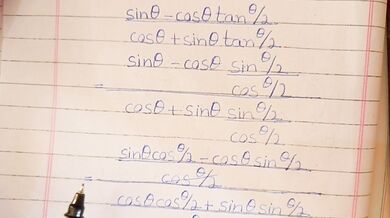 sinθ - cosθ tan θ/2
cosθ + sinθ tan θ/2
sinθ - cosθ sin θ/2
cos θ/2
=
cosθ + sinθ sin θ/2
cos θ/2
sinθ cos θ/2 - cosθ sin θ/2
cos θ/2
=
cosθ cos θ/2 + sinθ sin θ/2